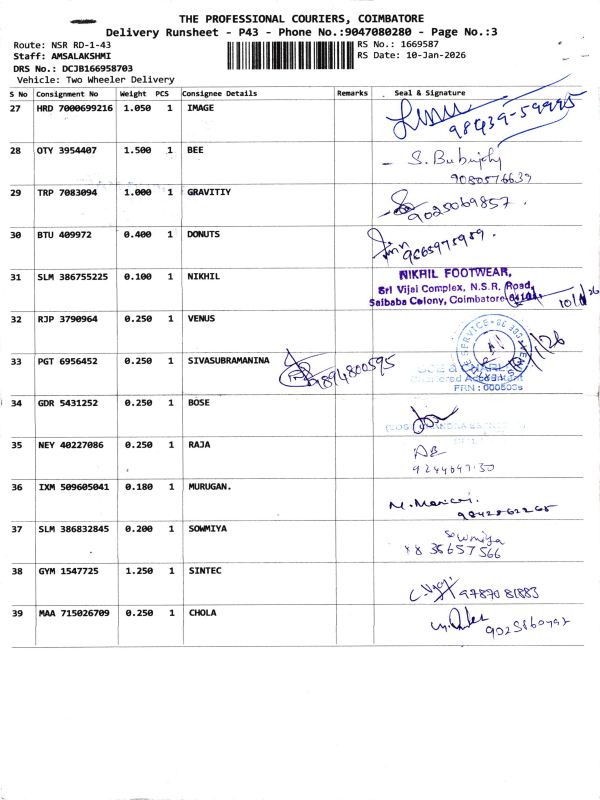 THE PROFESSIONAL COURIERS, COIMBATORE
Delivery Runsheet - P43 - Phone No.:9047080280 - Page No.:3
Route: NSR RD-1-43
RS No.: 1669587
Staff: AMSALAKSHMI
RS Date: 10-Jan-2026
DRS No.: DCJB166958703
Vehicle: Two Wheeler Delivery
S No Consignment No Weight PCS Consignee Details Remarks Seal & Signature
27 HRD 7000699216 1.050 1 IMAGE
98439-59995
28 OTY 3954407 1.500 1 BEE
9080576639
29 TRP 7083094 1.000 1 GRAVITIY
9025069857.
30 BTU 409972 0.400 1 DONUTS
9865975959.
31 SLM 386755225 0.100 1 NIKHIL
NIKHIL FOOTWEAR,
Sri Vijai Complex, N.S.R. Road,
Saibaba Colony, Coimbatore
32 RJP 3790964 0.250 1 VENUS
33 PGT 6956452 0.250 1 SIVASUBRAMANINA
9894800595
Chartered Accountant
34 GDR 5431252 0.250 1 BOSE
35 NEY 40227086 0.250 1 RAJA
36 IXM 509605041 0.180 1 MURUGAN.
9842862265
37 SLM 386832845 0.200 1 SOWMIYA
Sowmiya
38 GYM 1547725 1.250 1 SINTEC
97870 81883
39 MAA 715026709 0.250 1 CHOLA